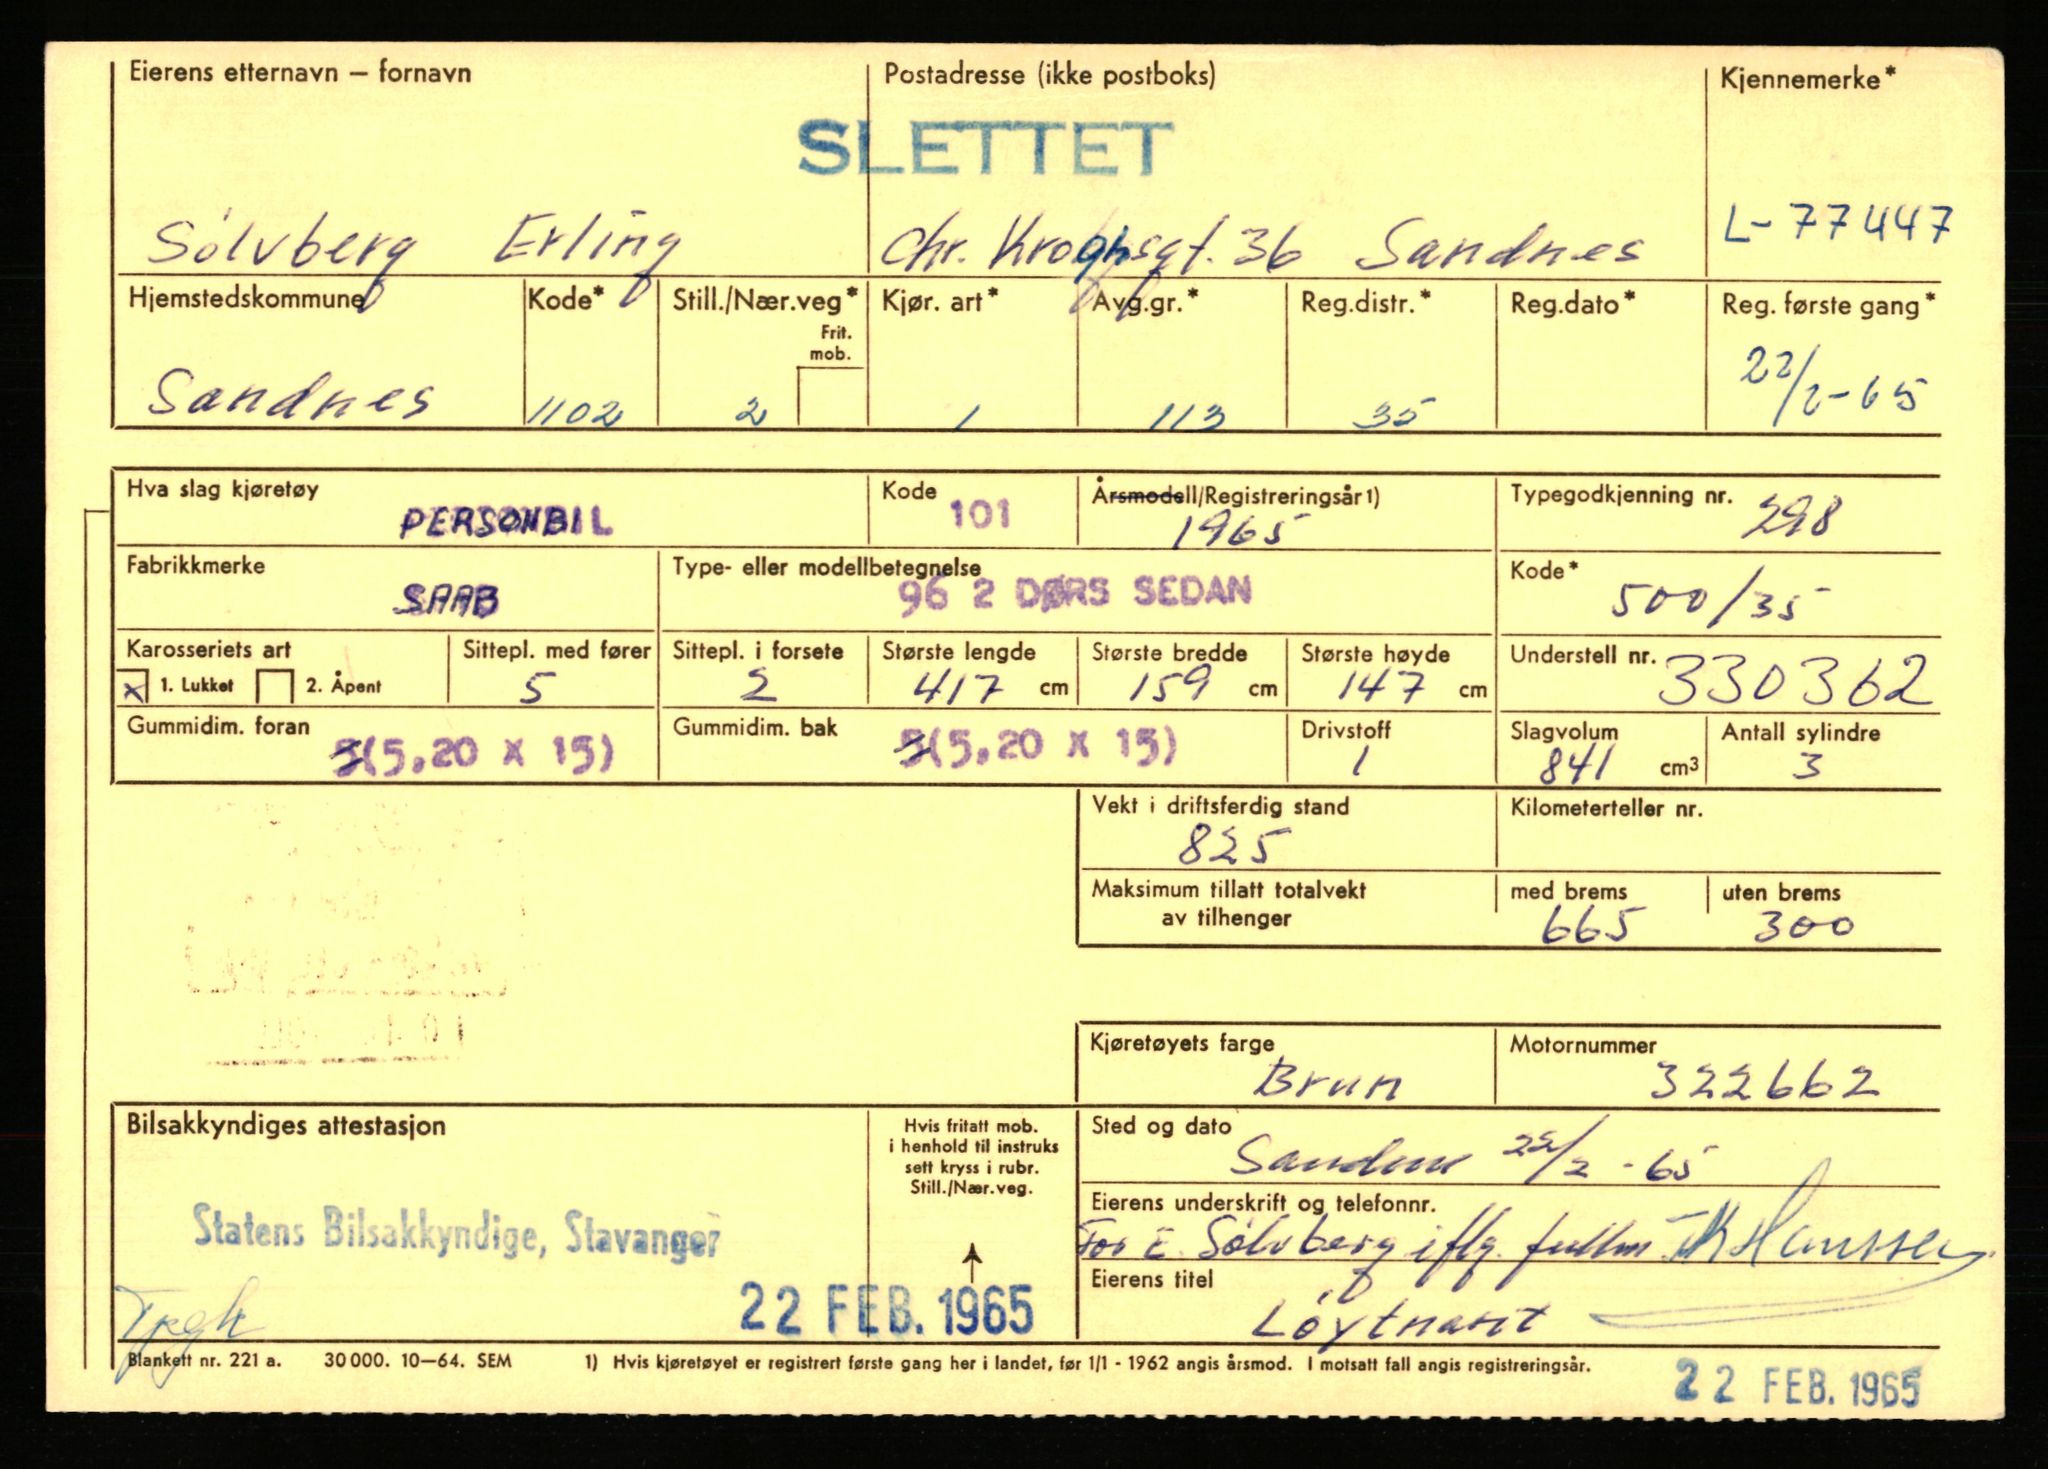 Eierens etternavn — fornavn Postadresse (ikke postboks) Kjennemerke*
SLETTET
Sølvberg Erling Chr. Kroghsgt. 36 Sandnes L-77447
Hjemstedskommune Kode* Still./Nær.veg* Kjør. art* Avg.gr.* Reg.distr.* Reg.dato* Reg. første gang*
Frit.
mob.
Sandnes 1102 2 1 113 35 22/2-65
Hva slag kjøretøy Kode Årsmodell/Registreringsår1) Typegodkjenning nr.
PERSONBIL 101 1965 298
Fabrikkmerke Type- eller modellbetegnelse Kode*
SAAB 96 2 DØRS SEDAN 500/35
Karosseriets art Sittepl. med fører Sittepl. i forsete Største lengde Største bredde Største høyde Understell nr.
x 1. Lukket 2. Åpent 5 2 417 cm 159 cm 147 cm 330362
Gummidim. foran Gummidim. bak Drivstoff Slagvolum Antall sylindre
5(5,20 X 15) 5(5,20 X 15) 1 841 cm3 3
Vekt i driftsferdig stand Kilometerteller nr.
825
Maksimum tillatt totalvekt med brems uten brems
av tilhenger 665 300
Kjøretøyets farge Motornummer
Brun 322662
Bilsakkyndiges attestasjon Hvis fritatt mob.
i henhold til instruks
sett kryss i rubr.
Still./Nær.veg.
Sted og dato
Sandnes 22/2 - 65
Eierens underskrift og telefonnr.
Statens Bilsakkyndige, Stavanger For E. Sølvberg iflg. fullm. Hanssen
Eierens titel
22 FEB. 1965 Løytnant
Blankett nr. 221 a. 30 000. 10—64. SEM 1) Hvis kjøretøyet er registrert første gang her i landet, før 1/1 - 1962 angis årsmod. I motsatt fall angis registreringsår.
22 FEB. 1965